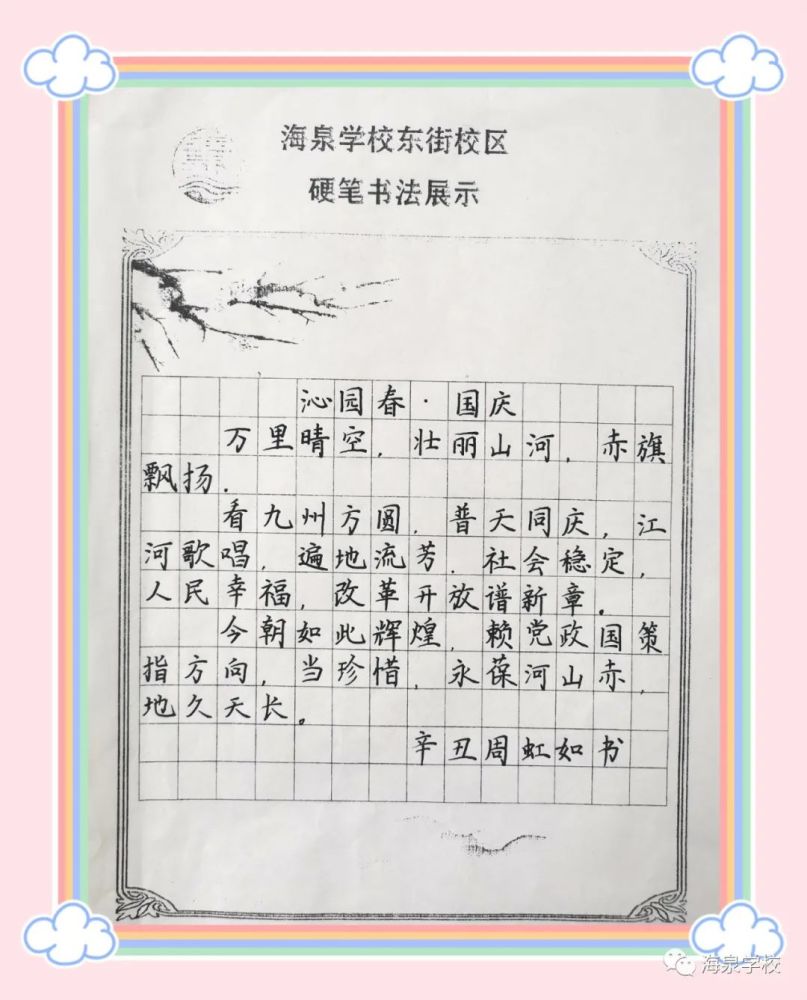 海泉学校东街校区
硬笔书法展示
沁园春·国庆
万里晴空，壮丽山河，赤旗
飘扬.
看九州方圆，普天同庆，江
河歌唱，遍地流芳．社会稳定，
人民幸福，改革开放谱新章．
今朝如此辉煌，赖党政国策
指方向，当珍惜，永葆河山赤，
地久天长。
辛丑周虹如书
海泉学校